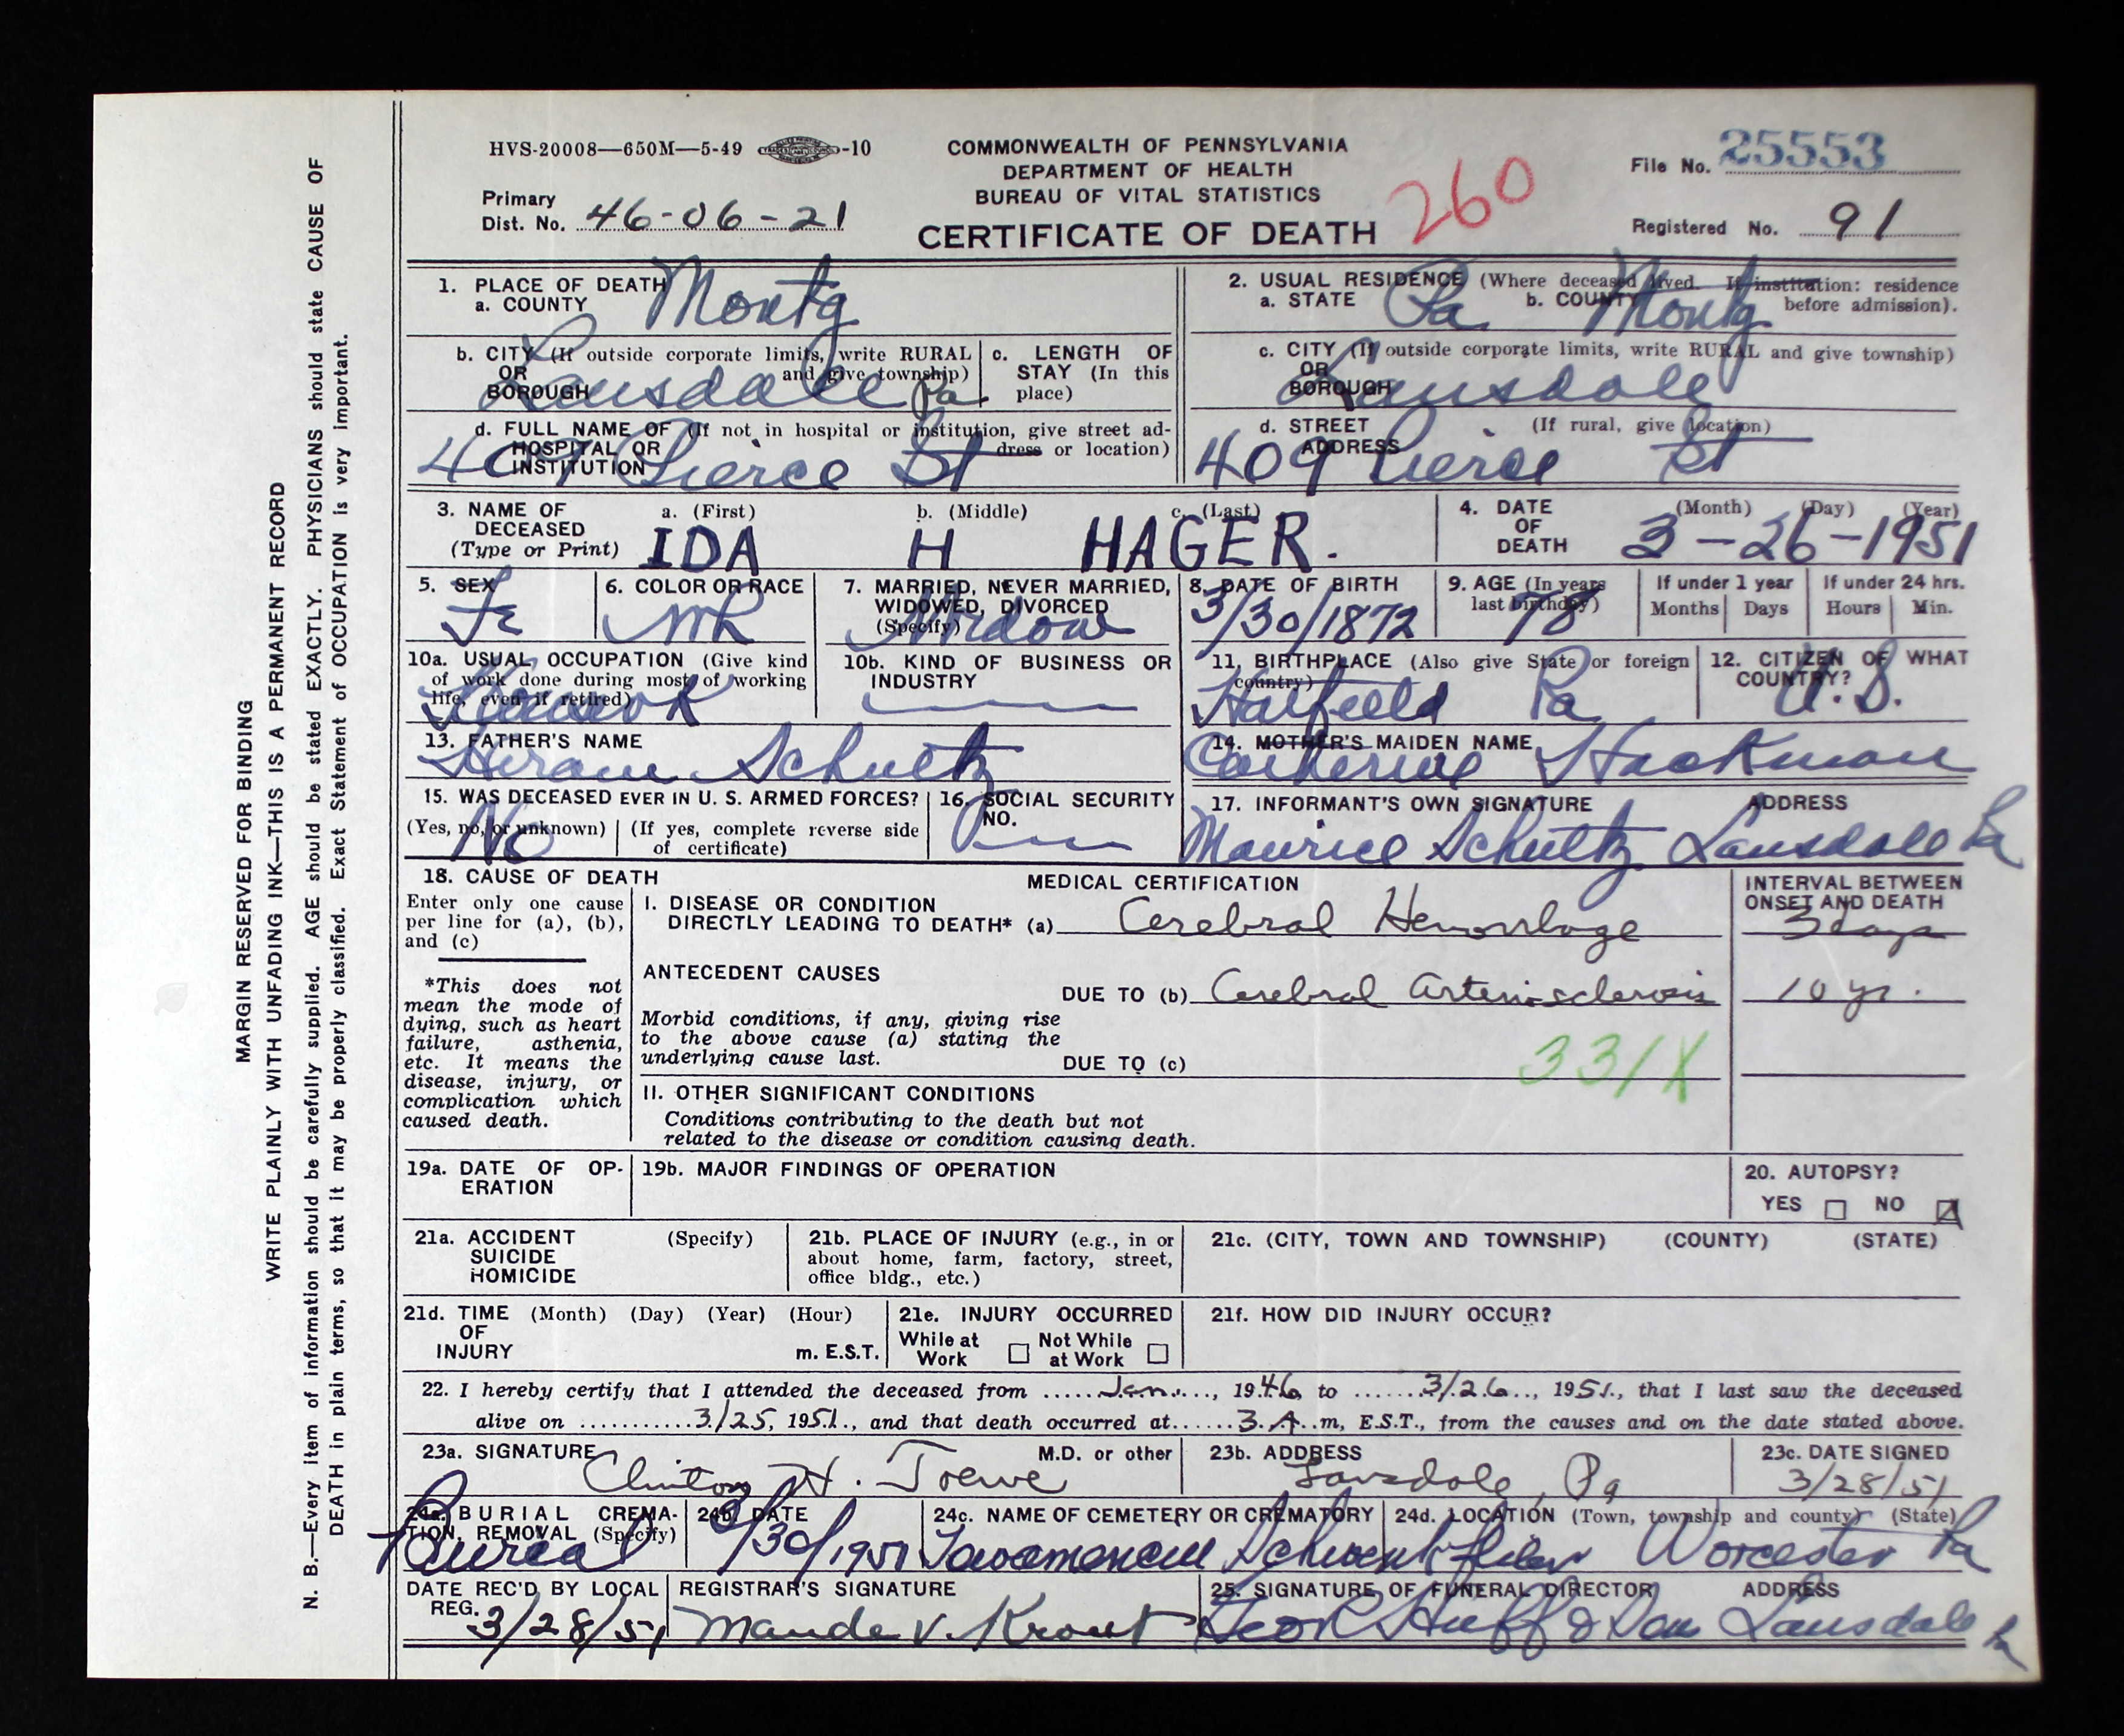 HVS-20008—650M—5-49 -10
COMMONWEALTH OF PENNSYLVANIA
DEPARTMENT OF HEALTH
BUREAU OF VITAL STATISTICS
CERTIFICATE OF DEATH
260
File No. 25553
Primary
Dist. No. 46-06-21
Registered No. 91
1. PLACE OF DEATH
a. COUNTY Montg
2. USUAL RESIDENCE (Where deceased lived. If institution: residence
a. STATE Pa b. COUNTY Montg before admission).
b. CITY (If outside corporate limits, write RURAL
OR and give township)
BOROUGH Lansdale Pa
c. LENGTH OF
STAY (In this
place)
c. CITY (If outside corporate limits, write RURAL and give township)
OR
BOROUGH Lansdale
d. FULL NAME OF (If not in hospital or institution, give street ad-
HOSPITAL OR dress or location)
INSTITUTION 409 Pierce St
d. STREET (If rural, give location)
ADDRESS 409 Pierce St
3. NAME OF a. (First) b. (Middle) c. (Last)
DECEASED
(Type or Print) IDA H HAGER.
4. DATE (Month) (Day) (Year)
OF
DEATH 3-26-1951
5. SEX
Fe
6. COLOR OR RACE
Wh
7. MARRIED, NEVER MARRIED,
WIDOWED, DIVORCED
(Specify) Widow
8. DATE OF BIRTH
3/30/1872
9. AGE (In years
last birthday) 78
If under 1 year
Months Days
If under 24 hrs.
Hours Min.
10a. USUAL OCCUPATION (Give kind
of work done during most of working
life, even if retired)
10b. KIND OF BUSINESS OR
INDUSTRY
11. BIRTHPLACE (Also give State or foreign
country)
Hatfield Pa
12. CITIZEN OF WHAT
COUNTRY? U.S.
13. FATHER'S NAME
Hiram Schultz
14. MOTHER'S MAIDEN NAME
Catherine Hackman
15. WAS DECEASED EVER IN U. S. ARMED FORCES?
(Yes, no, or unknown) (If yes, complete reverse side
of certificate)
No
16. SOCIAL SECURITY
NO.
17. INFORMANT'S OWN SIGNATURE ADDRESS
Maurice Schultz Lansdale Pa
18. CAUSE OF DEATH
MEDICAL CERTIFICATION
INTERVAL BETWEEN
ONSET AND DEATH
Enter only one cause
per line for (a), (b),
and (c)
I. DISEASE OR CONDITION
DIRECTLY LEADING TO DEATH* (a) Cerebral Hemorrhage
3 days
*This does not
mean the mode of
dying, such as heart
failure, asthenia,
etc. It means the
disease, injury, or
complication which
caused death.
ANTECEDENT CAUSES
DUE TO (b) Cerebral arteriosclerosis
10 yr.
Morbid conditions, if any, giving rise
to the above cause (a) stating the
underlying cause last.
DUE TO (c)
331X
II. OTHER SIGNIFICANT CONDITIONS
Conditions contributing to the death but not
related to the disease or condition causing death.
19a. DATE OF OP-
ERATION
19b. MAJOR FINDINGS OF OPERATION
20. AUTOPSY?
YES NO
21a. ACCIDENT (Specify)
SUICIDE
HOMICIDE
21b. PLACE OF INJURY (e.g., in or
about home, farm, factory, street,
office bldg., etc.)
21c. (CITY, TOWN AND TOWNSHIP) (COUNTY) (STATE)
21d. TIME (Month) (Day) (Year) (Hour)
OF
INJURY m. E.S.T.
21e. INJURY OCCURRED
While at Not While
Work at Work
21f. HOW DID INJURY OCCUR?
22. I hereby certify that I attended the deceased from Jan., 1946 to 3/26, 1951, that I last saw the deceased
alive on 3/25, 1951, and that death occurred at 3 A m, E.S.T., from the causes and on the date stated above.
23a. SIGNATURE M.D. or other
Clinton H. Toewe
23b. ADDRESS
Lansdale, Pa
23c. DATE SIGNED
3/28/51
24a. BURIAL CREMA-
TION, REMOVAL (Specify)
Burial
24b. DATE
3/30/1951
24c. NAME OF CEMETERY OR CREMATORY
24d. LOCATION (Town, township and county) (State)
Worcester Pa
DATE REC'D BY LOCAL
REG. 3/28/51
REGISTRAR'S SIGNATURE
Maude V. Krout
25. SIGNATURE OF FUNERAL DIRECTOR ADDRESS
Huff & Son Lansdale Pa
MARGIN RESERVED FOR BINDING
WRITE PLAINLY WITH UNFADING INK—THIS IS A PERMANENT RECORD
N. B.—Every item of information should be carefully supplied. AGE should be stated EXACTLY. PHYSICIANS should state CAUSE OF
DEATH in plain terms, so that it may be properly classified. Exact Statement of OCCUPATION is very important.